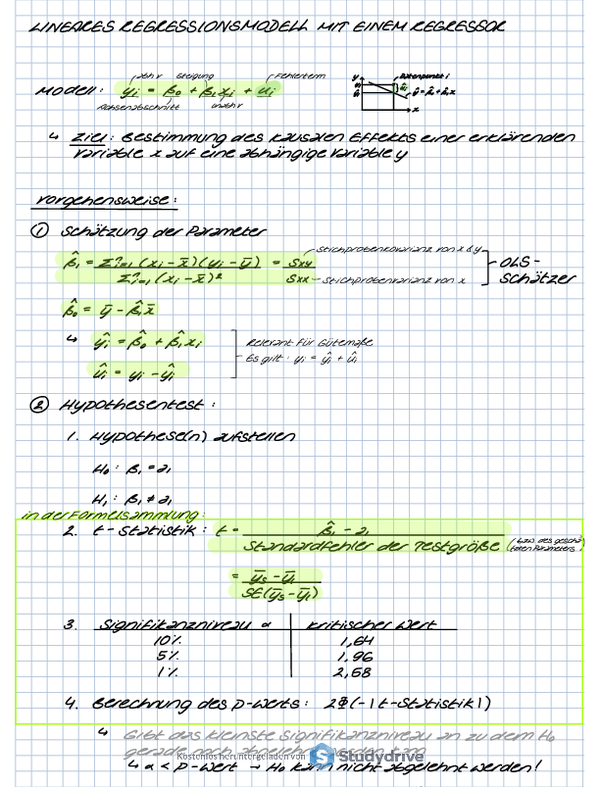 LINEARES REGRESSIONSMODELL MIT EINEM REGRESSOR
abh. V Steigung Fehlerterm
Modell: yi = β0 + β1xi + ui
Achsenabschnitt unabh. V
y Datenpunkt i
ŷ = β̂0 + β̂1x
x
↳ Ziel: Bestimmung des kausalen Effekts einer erklärenden
Variable x auf eine abhängige Variable y
Vorgehensweise:
① Schätzung der Parameter
β̂1 = Σⁿi=1 (xi - x̄)(yi - ȳ) = Sxy — Stichprobenkovarianz von x & y
Σⁿi=1 (xi - x̄)² Sxx — Stichprobenvarianz von x
OLS-
Schätzer
β̂0 = ȳ - β̂1x̄
↳ ŷi = β̂0 + β̂1xi Relevant für Gütemaße
ûi = yi - ŷi Es gilt: yi = ŷi + ûi
② Hypothesentest:
1. Hypothese(n) aufstellen
H0: β1 = a1
H1: β1 ≠ a1
in der Formelsammlung:
2. t-Statistik: t = β̂1 - a1
Standardfehler der Testgröße (bzw. des geschä
tzten Parameters)
= ȳs - ȳ1
SE(ȳs - ȳ1)
3. Signifikanzniveau α kritischer Wert
10% 1,64
5% 1,96
1% 2,58
4. Berechnung des p-Werts: 2Φ(-|t-Statistik|)
↳ Gibt das kleinste Signifikanzniveau an zu dem H0
gerade noch abgelehnt werden kann
Kostenlos heruntergeladen von Studydrive
↳ α < p-Wert → H0 kann nicht abgelehnt werden!